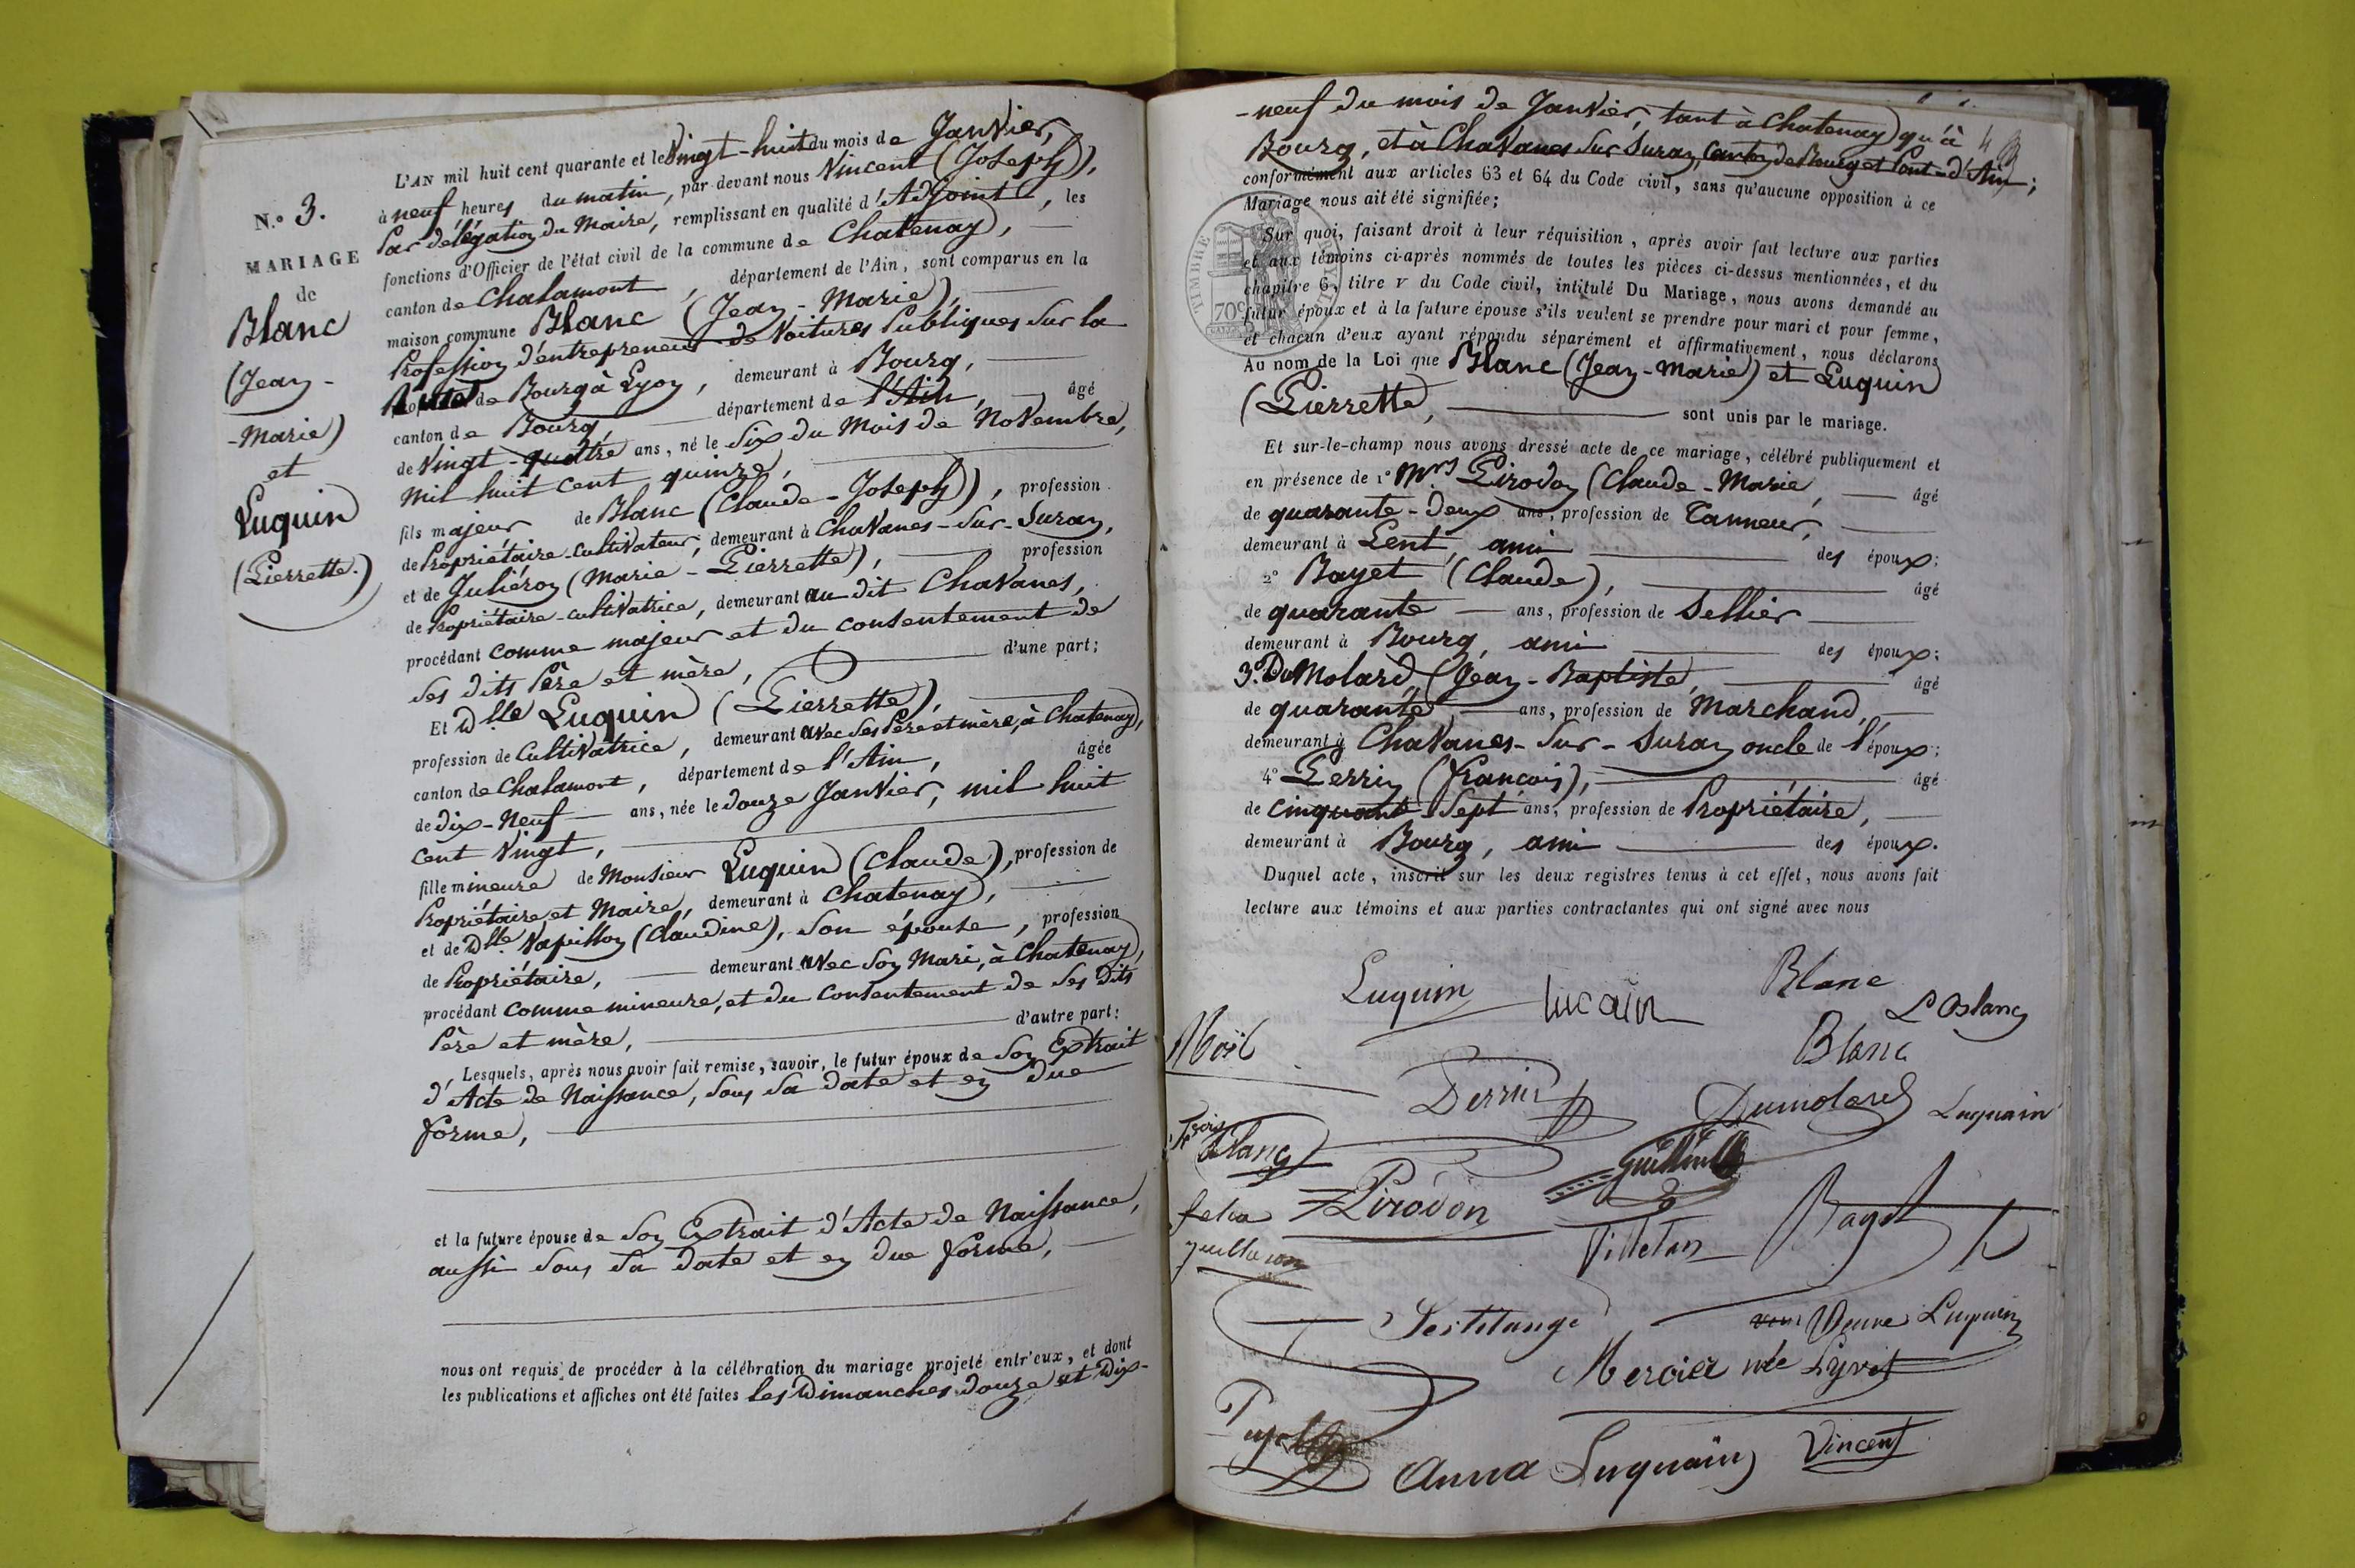 N.º 3.
MARIAGE
de
Blanc
(Jean-
-Marie)
et
Luquin
(Pierrette.)
L'AN mil huit cent quarante et le Vingt-huit du mois de Janvier,
à neuf heures du matin, par-devant nous Vincent (Joseph),
Par délégation du Maire, remplissant en qualité d'Adjoint, les
fonctions d'Officier de l'état civil de la commune de Chatenay,
canton de Chalamont, département de l'Ain, sont comparus en la
maison commune Blanc (Jean-Marie),
Profession d'entrepreneur de Voitures Publiques sur la
de Bourg à Lyon, demeurant à Bourg,
canton de Bourg, département de l'Ain, âgé
de Vingt-quatre ans, né le Six du Mois de Novembre,
mil huit cent quinze,
fils majeur de Blanc (Claude-Joseph), profession
de Propriétaire-cultivateur, demeurant à Chavanes-sur-Suran,
et de Juliéron (Marie-Pierrette), profession
de Propriétaire-cultivatrice, demeurant au dit Chavanes,
procédant comme majeur et du consentement de
ses dits Père et mère, d'une part;
Et Dlle Luquin (Pierrette),
profession de Cultivatrice, demeurant avec ses Père et mère, à Chatenay,
canton de Chalamont, département de l'Ain, âgée
de dix-neuf ans, née le douze Janvier, mil huit
cent Vingt,
fille mineure de Monsieur Luquin (Claude), profession de
Propriétaire et Maire, demeurant à Chatenay,
et de Dlle Vapillon (Claudine), son épouse, profession
de Propriétaire, demeurant avec son Mari, à Chatenay,
procédant comme mineure, et du consentement de ses dits
Père et mère, d'autre part:
Lesquels, après nous avoir fait remise, savoir, le futur époux de son Extrait
d'Acte de Naissance, sous sa date et en due
forme,
et la future épouse de son Extrait d'Acte de Naissance,
aussi sous sa date et en due forme,
nous ont requis de procéder à la célébration du mariage projeté entr'eux, et dont
les publications et affiches ont été faites les Dimanches douze et Dix-
-neuf du mois de Janvier, tant à Chatenay qu'à
Bourg, et à Chavanes sur Suran, Canton de Bourg et Pont-d'Ain;
conformément aux articles 63 et 64 du Code civil, sans qu'aucune opposition à ce
Mariage nous ait été signifiée;
Sur quoi, faisant droit à leur réquisition, après avoir fait lecture aux parties
et aux témoins ci-après nommés de toutes les pièces ci-dessus mentionnées, et du
chapitre 6, titre V du Code civil, intitulé Du Mariage, nous avons demandé au
futur époux et à la future épouse s'ils veulent se prendre pour mari et pour femme,
et chacun d'eux ayant répondu séparément et affirmativement, nous déclarons
Au nom de la Loi que Blanc (Jean-Marie) et Luquin
(Pierrette), sont unis par le mariage.
Et sur-le-champ nous avons dressé acte de ce mariage, célébré publiquement et
en présence de 1º Mrs Pirodon (Claude-Marie, âgé
de quarante-deux ans, profession de Tanneur,
demeurant à Lent, ami des époux;
2º Bayet (Claude), âgé
de quarante ans, profession de Sellier
demeurant à Bourg, ami des époux;
3º DuMolard (Jean-Baptiste, âgé
de quarante, ans, profession de Marchand,
demeurant à Chavanes-sur-Suran oncle de l'époux;
4º Perrin (François), âgé
de cinquante-Sept ans, profession de Propriétaire,
demeurant à Bourg, ami des époux.
Duquel acte, inscrit sur les deux registres tenus à cet effet, nous avons fait
lecture aux témoins et aux parties contractantes qui ont signé avec nous
TIMBRE ROYAL
70c
Luquin lucain Blanc
L Blanc
Noïl Blanc
Perrin Dumolard Luquain
Blanc
Pirodon
Bayet
Veuve Luquin
Mercier née
Anna Luquain Vincent